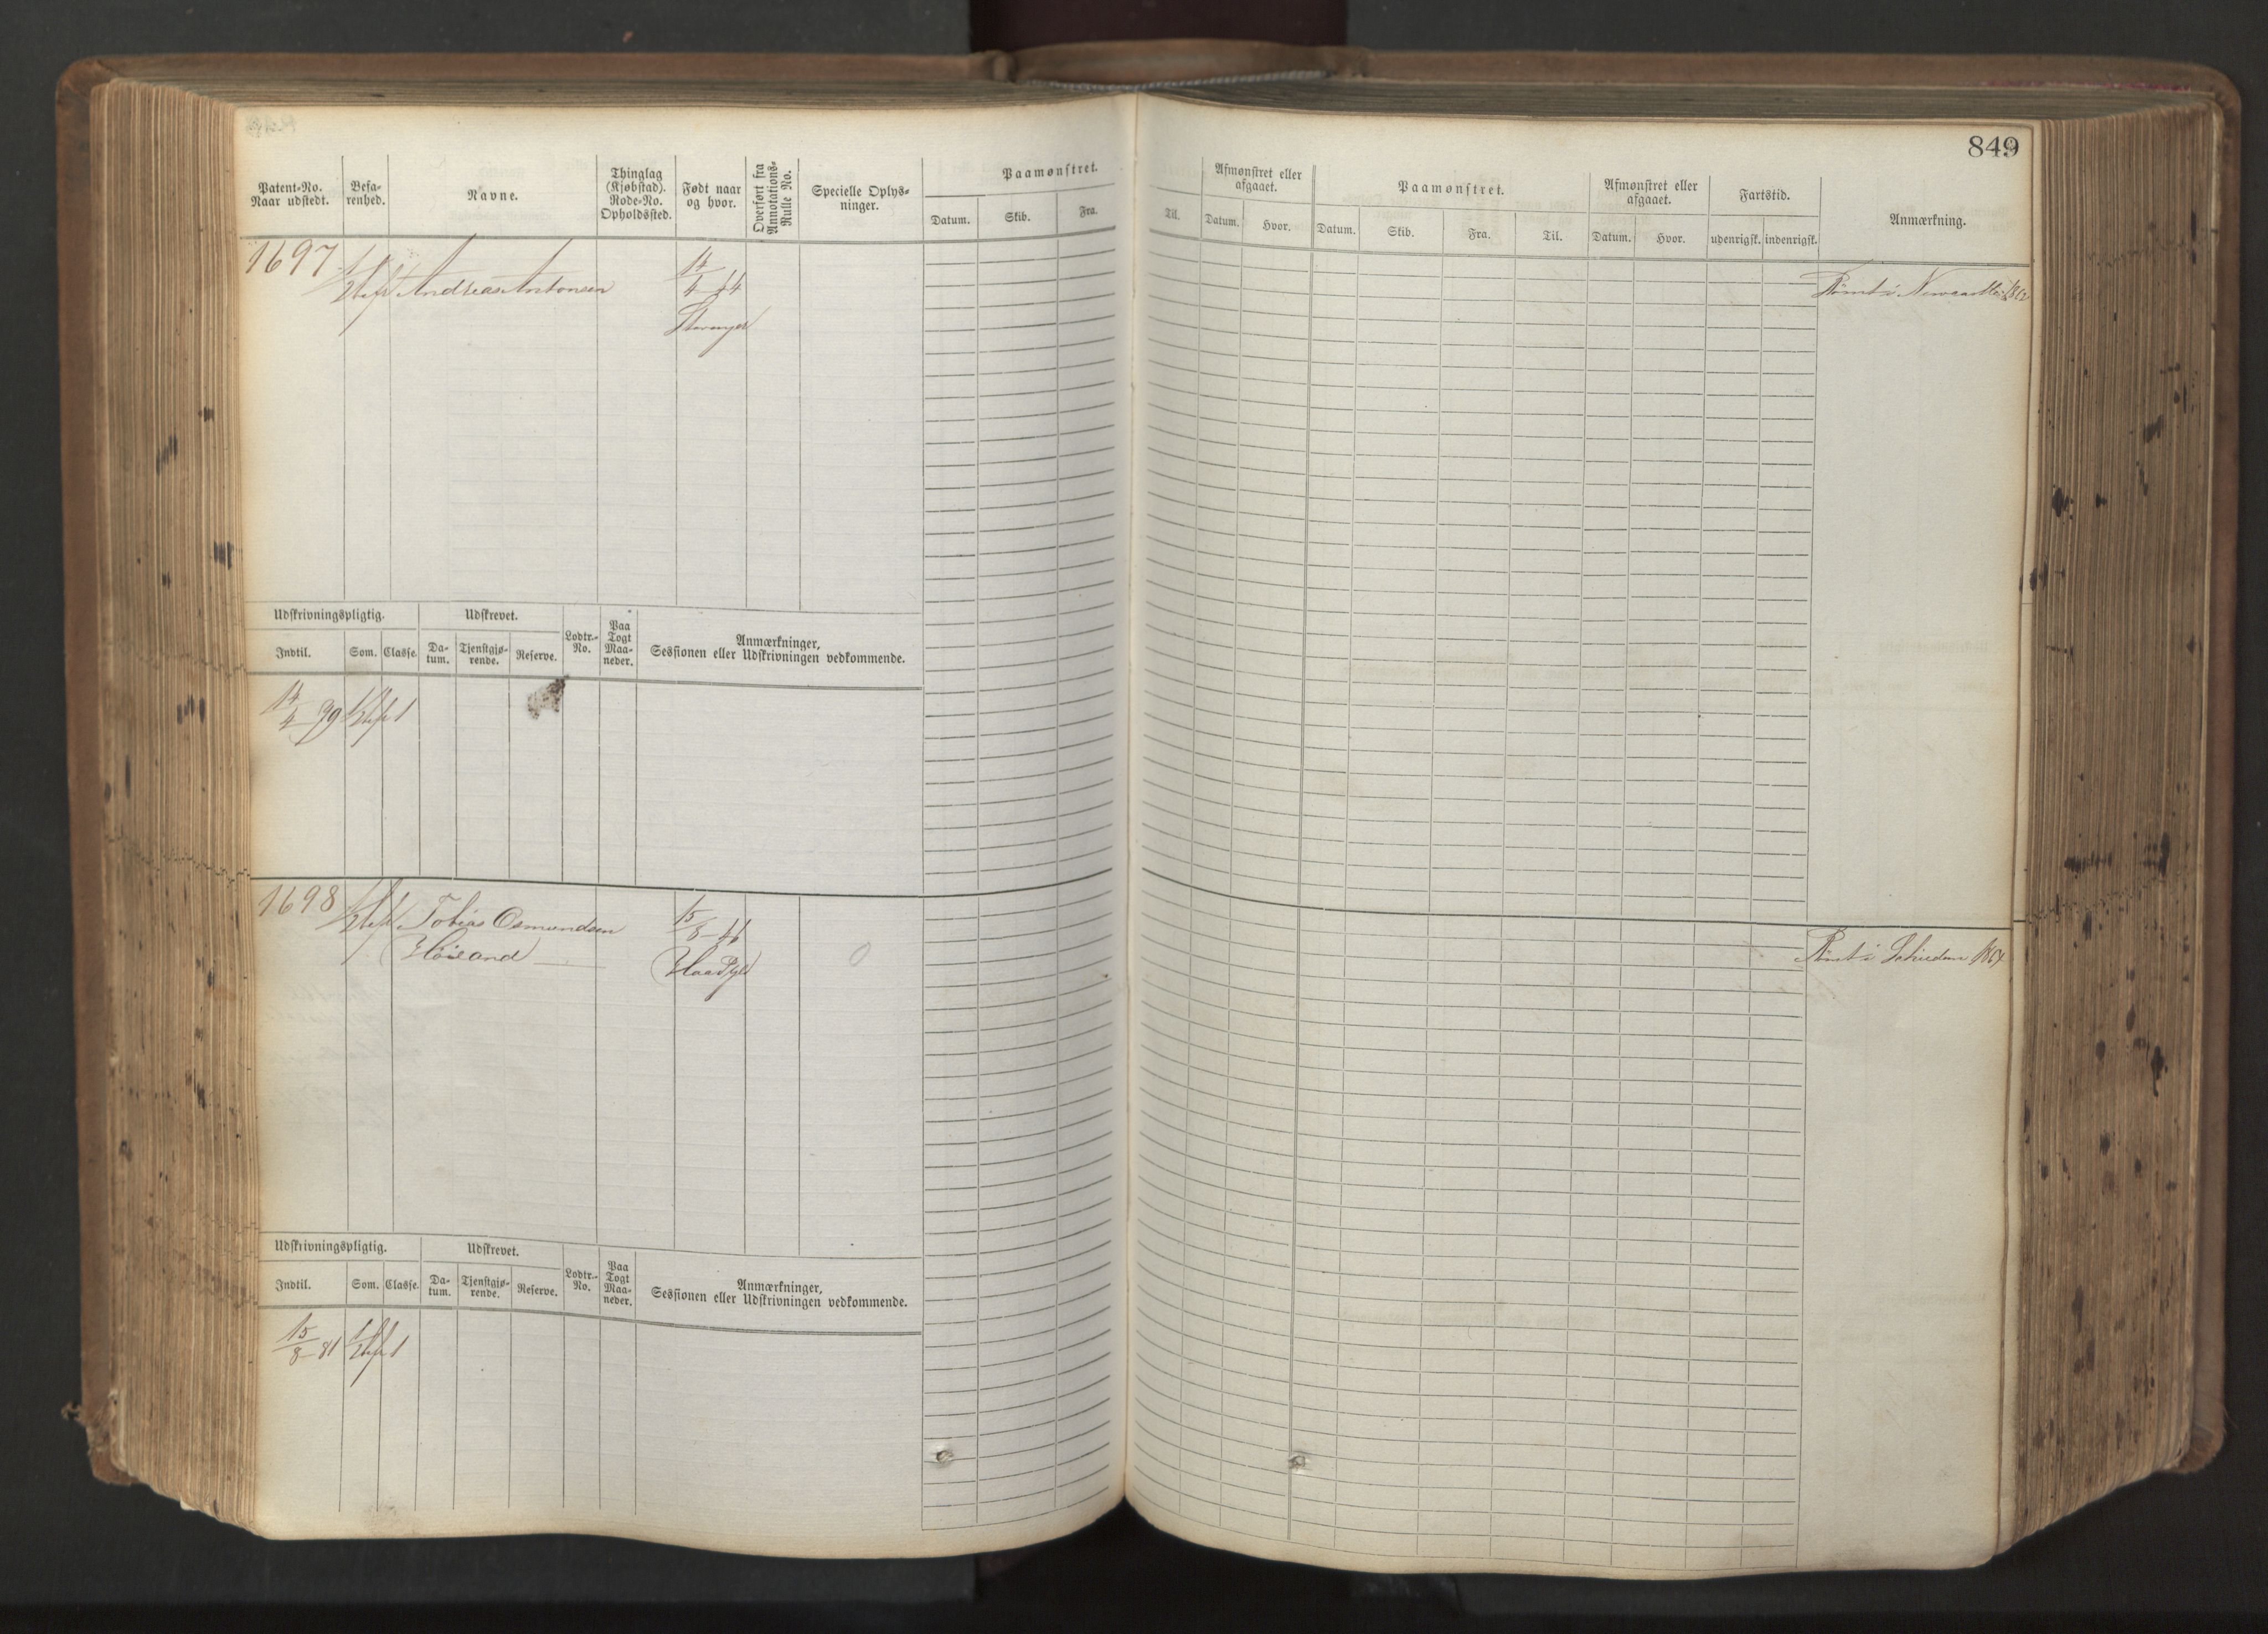 849
Patent-No.
Naar udstedt.
Befa-
renhed.
Navne.
Thinglag
(Kjøbstad).
Rode-No.
Opholdssted.
Født naar
og hvor.
Overført fra
Annotations-
Rulle No.
Specielle Oplys-
ninger.
Paamønstret.
Datum. Skib. Fra.
Til.
Afmønstret eller
afgaaet.
Datum. Hvor.
Paamønstret.
Datum. Skib. Fra. Til.
Afmønstret eller
afgaaet.
Datum. Hvor.
Fartstid.
udenrigsk. indenrigsk.
Anmærkning.
1697
Andreas Antonsen
14/4 44
Stavanger
Rømt i Newcastle 1862
Udskrivningspligtig.
Indtil. Som. Classe.
Udskrevet.
Da-
tum.
Tjenstgjø-
rende.
Reserve.
Lodtr.-
No.
Paa
Togt
Maa-
neder.
Anmærkninger,
Sessionen eller Udskrivningen vedkommende.
14/4 79 1
1698
Tobias Osmundsen
Høiland
15/8 46
Haa Pgld
Rømt i Schiedam 1864
Udskrivningspligtig.
Indtil. Som. Classe.
Udskrevet.
Da-
tum.
Tjenstgjø-
rende.
Reserve.
Lodtr.-
No.
Paa
Togt
Maa-
neder.
Anmærkninger,
Sessionen eller Udskrivningen vedkommende.
15/8 81 1